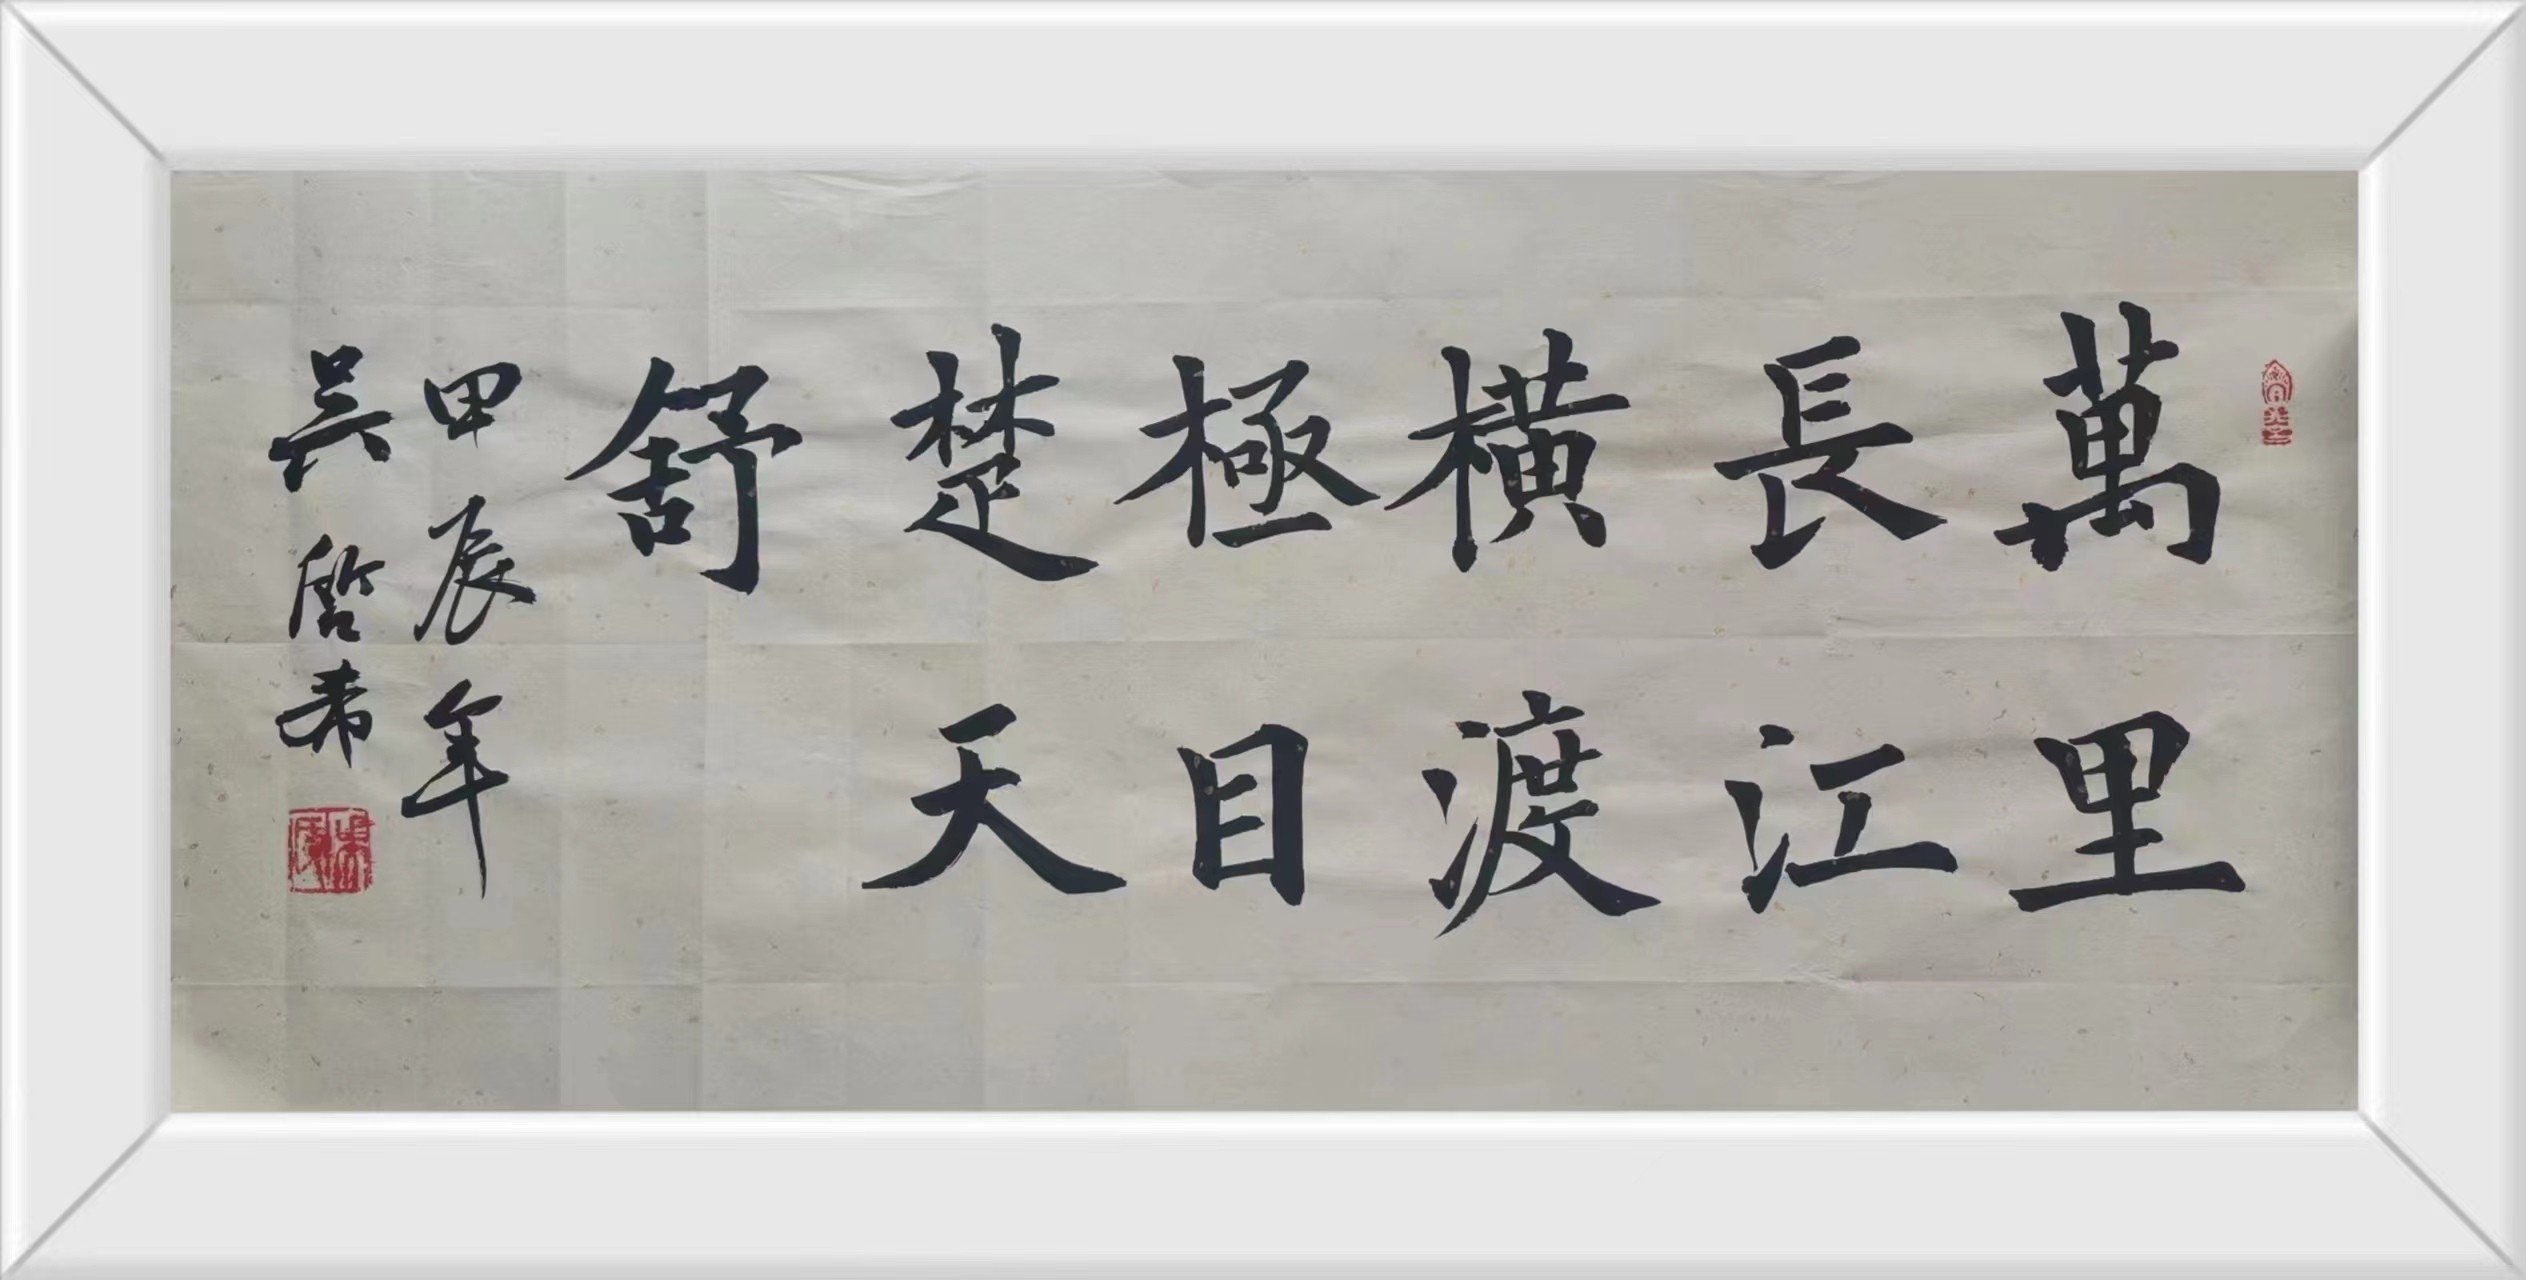 萬里
長江
横渡
極目
楚天
舒
甲辰年
吴啓希